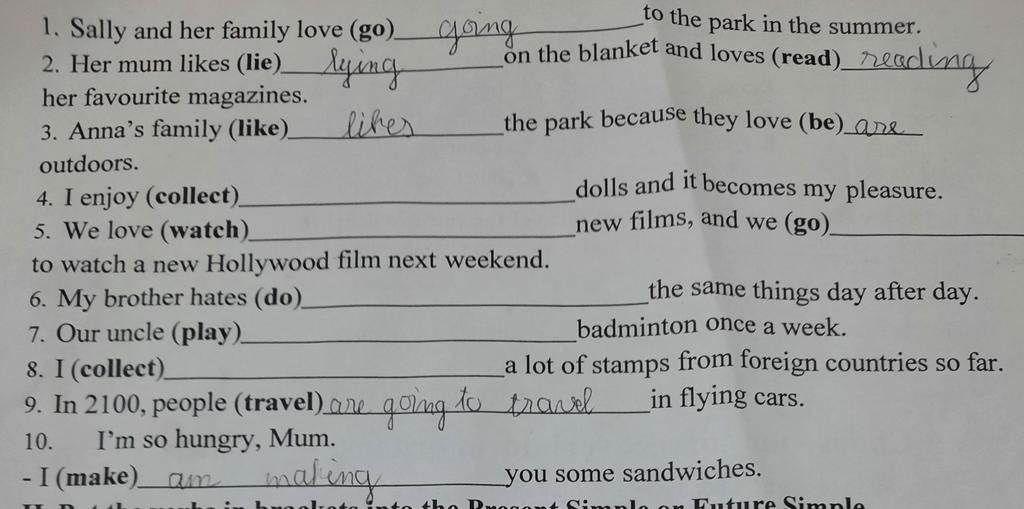 1. Sally and her family love (go) going to the park in the summer.
2. Her mum likes (lie) lying on the blanket and loves (read) reading
her favourite magazines.
3. Anna's family (like) likes the park because they love (be) are
outdoors.
4. I enjoy (collect) dolls and it becomes my pleasure.
5. We love (watch) new films, and we (go)
to watch a new Hollywood film next weekend.
6. My brother hates (do) the same things day after day.
7. Our uncle (play) badminton once a week.
8. I (collect) a lot of stamps from foreign countries so far.
9. In 2100, people (travel) are going to travel in flying cars.
10. I'm so hungry, Mum.
- I (make) am making you some sandwiches.
II. Put the verbs in brackets into the Present Simple or Future Simple